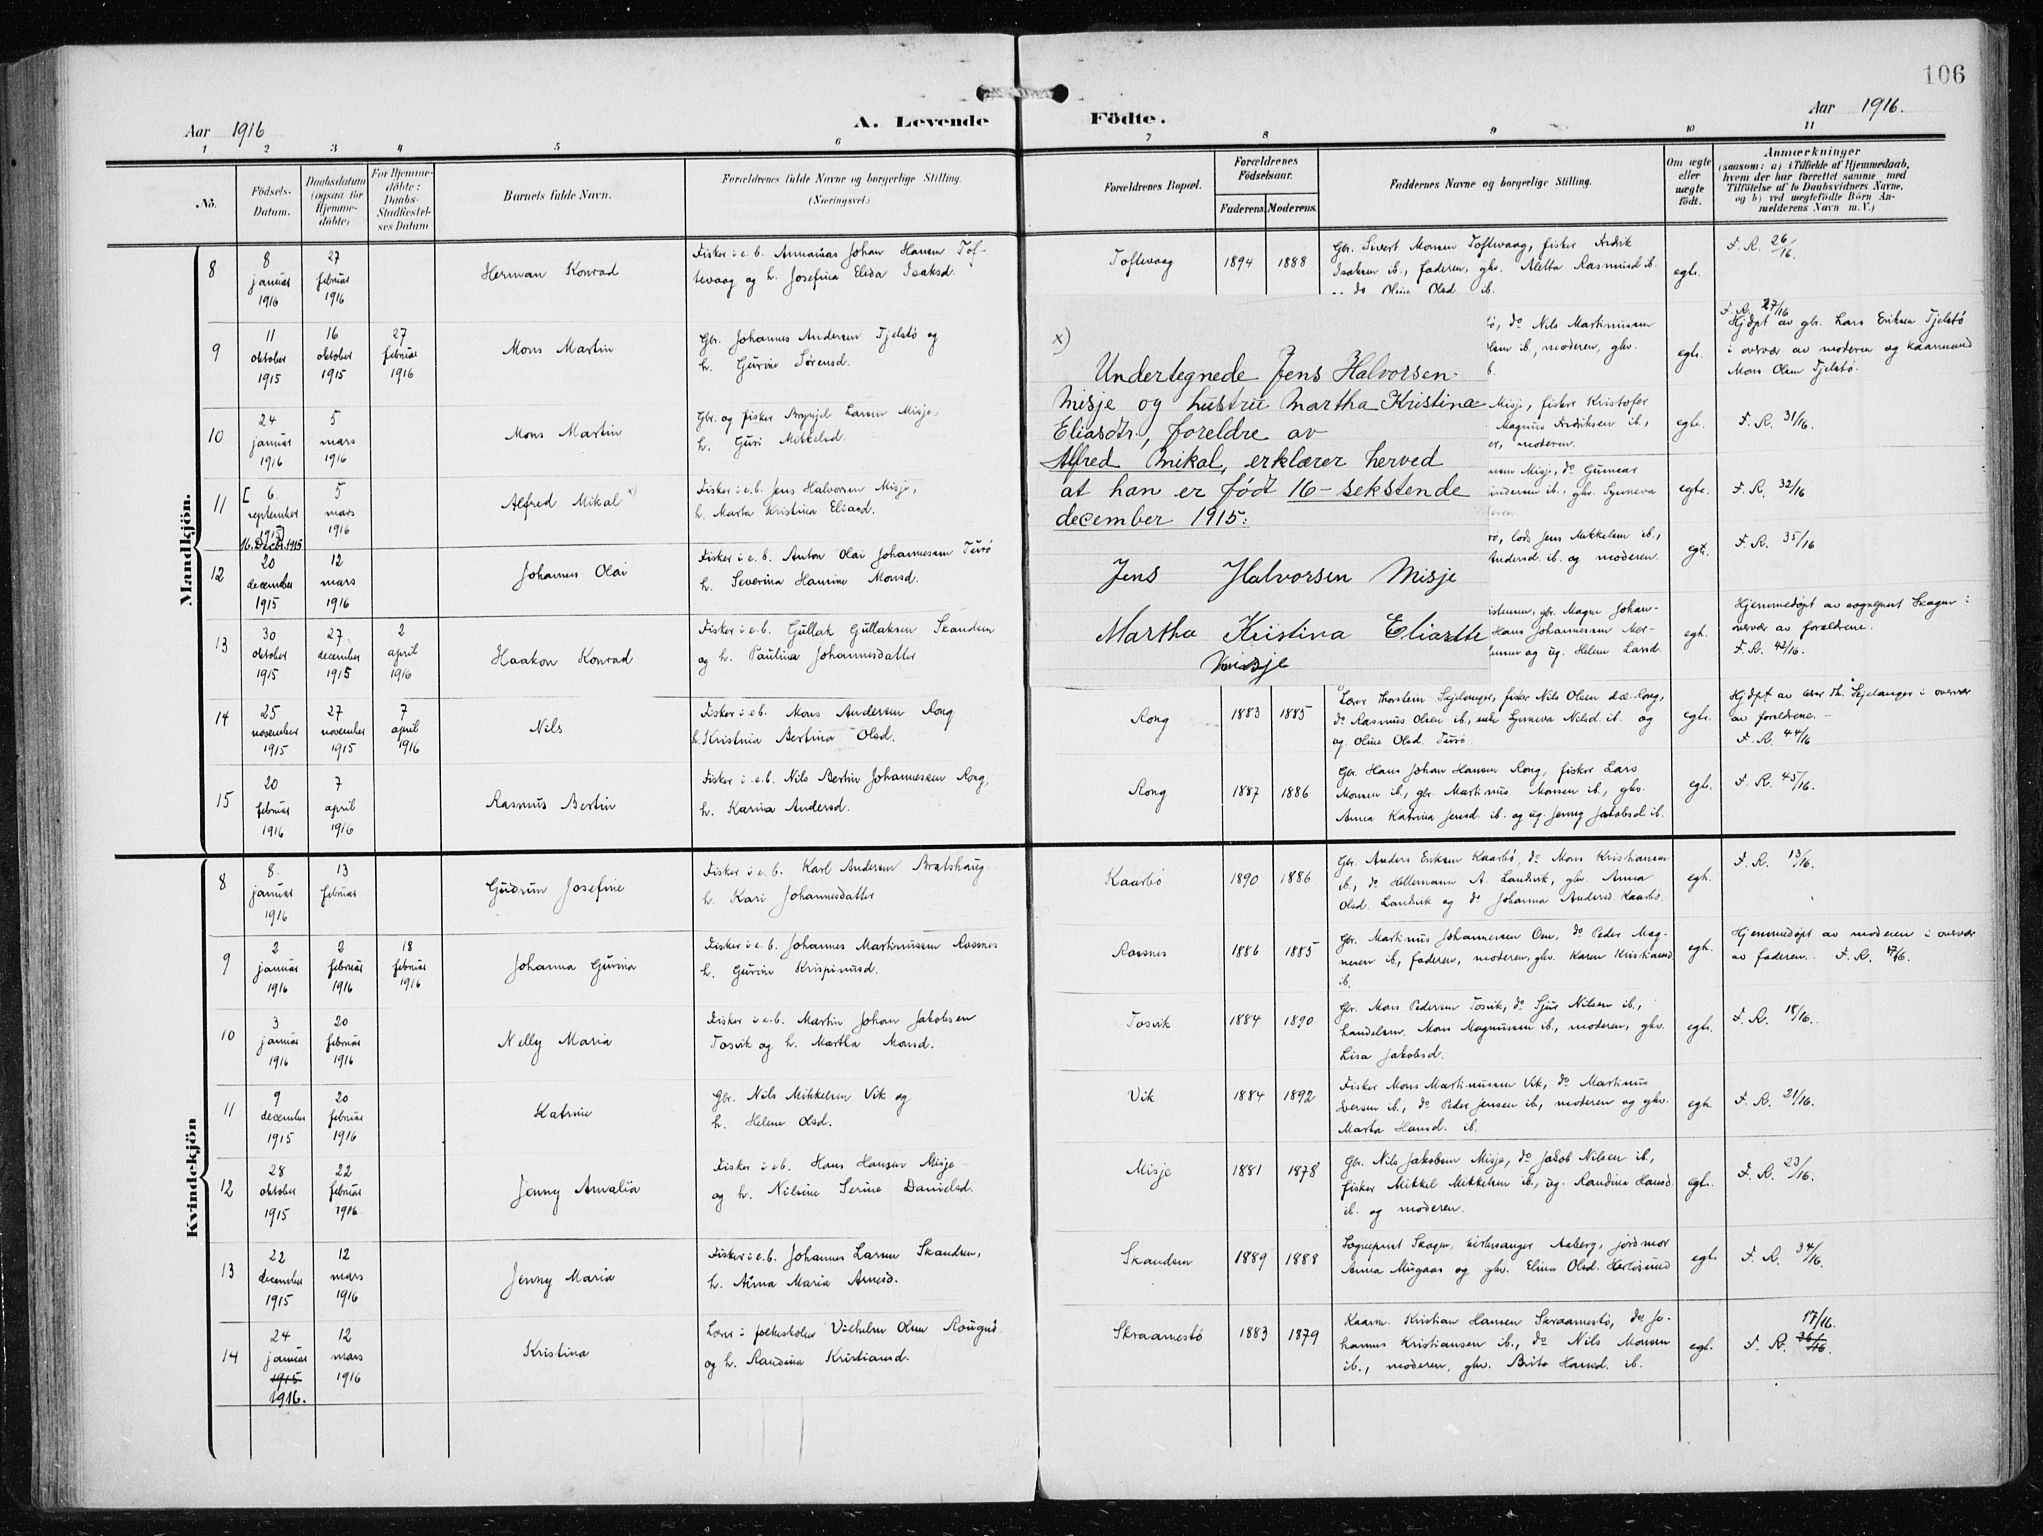 106
Aar 1916
A. Levende
Födte.
Aar 1916.
1 2 3 4 5 6 7 8 9 10 11
No.
Födsels-Datum.
Daabsdatum (ogsaa for Hjemme-döbte)
For Hjemme-döbte: Daabs-Stadfæstel-ses Datum
Barnets fulde Navn.
Forældrenes fulde Navne og borgerlige Stilling.
(Næringsvei.)
Forældrenes Bopæl.
Forældrenes Födselsaar.
Faderens. Moderens.
Faddernes Navne og borgerlige Stilling.
Om ægte eller uægte födt.
Anmærkninger
(saasom: a) i Tilfælde af Hjemmedaab,
hvem der har forrettet samme med
Tilföielse af to Daabsvidners Navne,
og b) ved uægtefödte Börn An-
melderens Navn m. V.)
Mandkjön.
8
8 januar 1916
27 februar 1916
Herman Konrad
Fisker i e.b. Annanias Johan Hansen Tof-
tevaag og h. Josefina Elida Isaksd.
Toftevaag
1894 1888
Gbr. Sivert Monsen Toftevaag, fisker Fredrik
Isaksen ib., faderen, ghv. Aletta Rasmusd. ib.
og do Oline Olsd. ib.
egte.
F. R. 26/16.
9
11 oktober 1915
16 oktober 1915
27 februar 1916
Mons Martin
Gbr. Johannes Andersen Tjelstö og
h. Gurine Sörensd.
do Nils Martinussen
ib., moderen, ghv.
egte.
F. R. 27/16
Hjdpt av gbr. Lars Eriksen Tjelstö
i overvær av moderen og kaarmand
Mons Olsen Tjelstö.
10
24 januar 1916
5 mars 1916
Mons Martin
Gbr. og fisker Brynjel Larsen Misje,
h. Guri Mikkelsd.
Misje, fisker Kristofer
Magnus Fredriksen ib.,
moderen.
egte.
F. R. 31/16.
11
[6. september 1915]
16. Decbr. 1915
5 mars 1916
Alfred Mikal x)
Fisker i e.b. Jens Halvorsen Misje,
h. Marta Kristina Eliasd.
Misje, do Gunnar
ib., ghv. Synneva
egte.
F. R. 32/16
12
20 december 1915
12 mars 1916
Johannes Olai
Fisker i e.b. Anton Olai Johannessen Turö
h. Severina Hansine Monsd.
lods Jens Mikkelsen ib.,
Andersd. ib. og moderen.
egt.
F. R. 35/16
13
30 oktober 1915
27 december 1915
2 april 1916
Haakon Konrad
Fisker i e.b. Gullak Gullaksen Skandsen
og h. Paulina Johannesdatter
gbr. Magne Johan-
Hans Johannessen
og ug. Helene Larsd.
egte.
Hjemmedøpt av sogneprest Skagen i
overvær av forældrene.
F. R. 42/16.
x)
Undertegnede Jens Halvorsen
Misje og hustru Martha Kristina
Eliasdtr., foreldre av
Alfred Mikal, erklærer herved
at han er født 16 - sekstende
december 1915:
Jens Halvorsen Misje
Martha Kristina Eliasdtte
Misje
14
25 november 1915
27 november 1915
7 april 1916
Nils
Fisker i e.b. Mons Andersen Rong
h. Kristnia Bertina Olsd.
Rong
1883 1885
Lærer Thorstein Skjelanger, fisker Nils Olsen d.æ. Rong,
do Rasmus Olsen ib., enke Synneva Nilsd. ib. og
ug. Oline Olsd. Turö.
egte.
Hjdpt av lærer Th. Skjelanger i overvær
av foreldrene.
F. R. 44/16
15
20 februar 1916
7 april 1916
Rasmus Bertin
Fisker i e.b. Nils Bertin Johannessen Rong,
h. Karina Andersd.
Rong
1887 1886
Gbr. Hans Johan Hansen Rong, fisker Lars
Monsen ib., gbr. Martinus Monsen ib., ghv.
Anna Katrina Jensd. ib. og ug. Jenny Jakobsd. ib.
egte.
F. R. 45/16.
Kvindekjön
8
8. januar 1916
13 februar
Gudrun Josefine
Fisker i e.b. Karl Andersen Bratshaug.
h. Kari Johannesdatter
Kaarbö
1890 1886
Gbr. Anders Eriksen Kaarbö, do Mons Kristiansen
ib., do Hellemann A. Landvik, ghv. Anna
Olsd. Landvik og do Johanna Andersd. Kaarbö.
egte.
F. R. 13/16.
9
2 januar 1916
2 februar 1916
18 februar 1916
Johanna Gurina
Fisker i e.b. Johannes Martinussen Rossnes
h. Gurine Krispinusd.
Rossnes
1886 1885
Gbr. Martinus Johannessen Oen, do Peder Mag-
nesen ib., faderen, moderen, ghv. Karen Kristiansd
ib.
egte.
Hjemmedøpt av moderen i overvær
av faderen. F. R. 17/16.
10
3 januar 1916
20 februar 1916
Nelly Maria
Fisker i e.b. Martin Johan Jakobsen
Tosvik og h. Martha Monsd.
Tosvik
1884 1890
Gbr. Mons Pedersen Tosvik, do Sjur Nilsen ib.,
handelsm. Mons Magnussen ib., moderen, ghv.
Lisa Jakobsd.
egte.
F. R. 18/16.
11
9 december 1915
20 februar 1916
Katrine
Gbr. Nils Mikkelsen Vik og
h. Helene Olsd.
Vik
1884 1892
Fisker Mons Martinussen Vik, do Martinus
Iversen ib., do Peder Jensen ib., moderen og ghv.
Marta Hansd. ib.
egte.
F. R. 21/16.
12
28 oktober 1915
22 februar 1916
Jenny Amalia
Fisker i e.b. Hans Hansen Misje
og h. Nilsine Serine Danielsd.
Misje
1881 1878
Gbr. Nils Jakobsen Misje, do Jakob Nilsen ib.,
fisker Mikkel Mikkelsen ib., ug. Raudina Hansd.
ib. og moderen.
egte.
F. R. 23/16.
13
22 december 1915
12 mars 1916
Jenny Maria
Fisker i e.b. Johannes Larsen Skandsen,
h. Anna Maria Arnesd.
Skandsen
1889 1888
Sogneprest Skagen, kirkesanger Aaberg, jordmor
Anna Mugaas og ghv. Elina Olsd. Herløsund
egte.
F. R. 34/16.
14
24 januar 1915 1916.
12 mars 1916
Kristina
Lærer i folkeskolen Vilhelm Olsen Rougnö
og h. Raudina Kristiansd.
Skraamestö
1883 1879
Kaarm. Kristian Hansen Skraamestö, do Jo-
hannes Kristiansen ib., do Nils Monsen
ib., moderen, ghv. Brita Hansd. ib.
egt.
17/16.
F. R. 36/16.